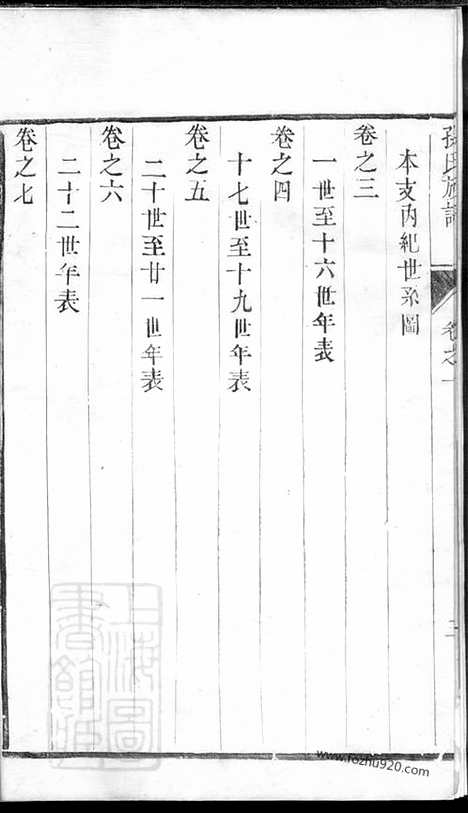 孫氏族譜
卷之一
二
本支內紀世系圖
卷之三
一世至十六世年表
卷之四
十七世至十九世年表
卷之五
二十世至廿一世年表
卷之六
二十二世年表
卷之七
上海圖書館藏
www.fozhu920.com